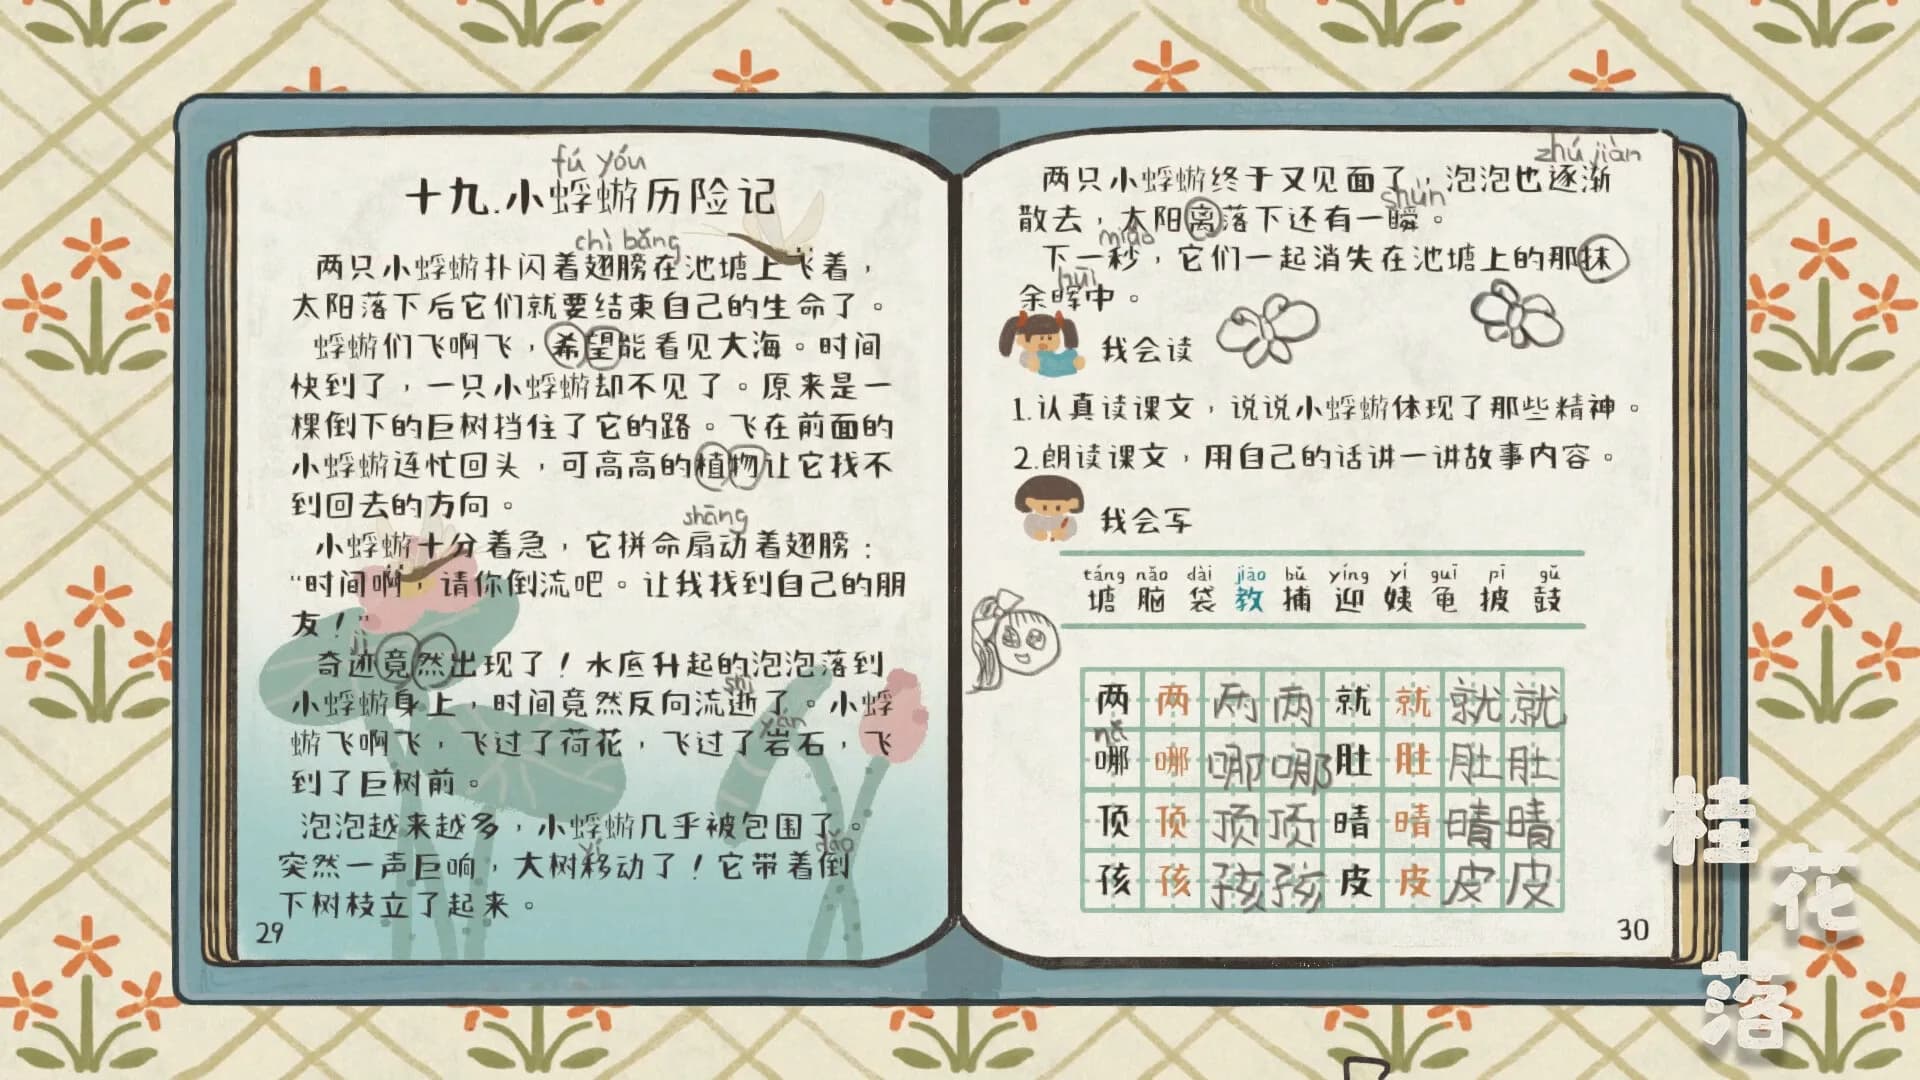 fú yóu
十九.小蜉蝣历险记
chì bǎng
两只小蜉蝣扑闪着翅膀在池塘上飞着，
太阳落下后它们就要结束自己的生命了。
蜉蝣们飞啊飞，希望能看见大海。时间
快到了，一只小蜉蝣却不见了。原来是一
棵倒下的巨树挡住了它的路。飞在前面的
小蜉蝣连忙回头，可高高的植物让它找不
到回去的方向。
shāng
小蜉蝣十分着急，它拼命扇动着翅膀：
“时间啊，请你倒流吧。让我找到自己的朋
友！”
jì
奇迹竟然出现了！水底升起的泡泡落到
shì
小蜉蝣身上，时间竟然反向流逝了。小蜉
yán
蝣飞啊飞，飞过了荷花，飞过了岩石，飞
到了巨树前。
泡泡越来越多，小蜉蝣几乎被包围了。
yí dǎo
突然一声巨响，大树移动了！它带着倒
下树枝立了起来。
29
zhú jiàn
两只小蜉蝣终于又见面了，泡泡也逐渐
shùn
散去，太阳离落下还有一瞬。
miǎo
下一秒，它们一起消失在池塘上的那抹
huī
余晖中。
我会读
1.认真读课文，说说小蜉蝣体现了那些精神。
2.朗读课文，用自己的话讲一讲故事内容。
我会写
táng nǎo dài jiāo bǔ yíng yí guī pī gǔ
塘 脑 袋 教 捕 迎 姨 龟 披 鼓
两 两 两 两 就 就 就 就
nǎ
哪 哪 哪 哪 肚 肚 肚 肚
顶 顶 顶 顶 晴 晴 晴 晴
孩 孩 孩 孩 皮 皮 皮 皮
30
桂
花
落